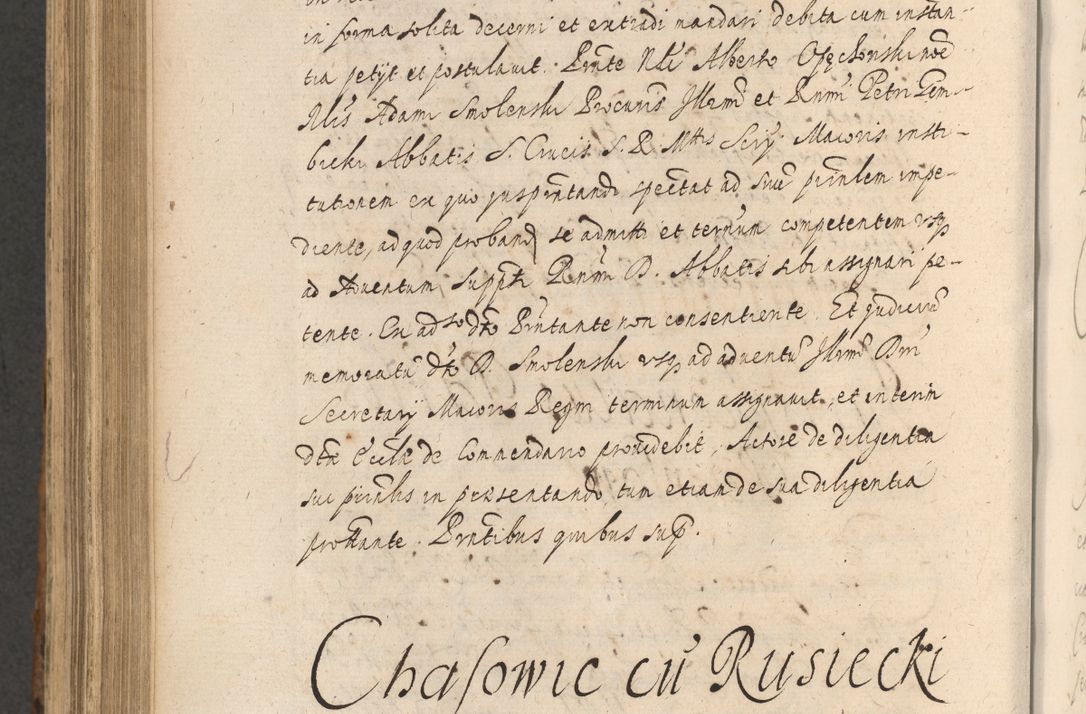 in forma solita decerni et extradi mandari debita cum instan-
tia petijt et postulavit. Pnte Nli Alberto Opęchowski noe
Nlis Adami Smolenski Procuris Illrmi et Rnmi Petri Gem-
bicki Abbatis S. Crucis S. R. Mttis Scrij Maioris insti-
tutionem ex quo juspntandi spectat ad suu prinlem impe-
diente, ad quod proband se admitti et terminum competentem usq
ad Adventum suppti Rnmi D. Abbatis sibi assignari pe-
tente. Ex adso dto Pntante non consentiente. Et qudicium
memoratu dto D. Smolenski usq ad adventu Illrmi Dni
Secretarij Maioris Regni terminum assignavit, et interim
dta Eccla de Commendario providebit, Actore de diligentia
sui prinlis in presentando, tum etiam de sua diligentia
prottante. Pntibus quibus sup.
Chasowic cu Rusiecki